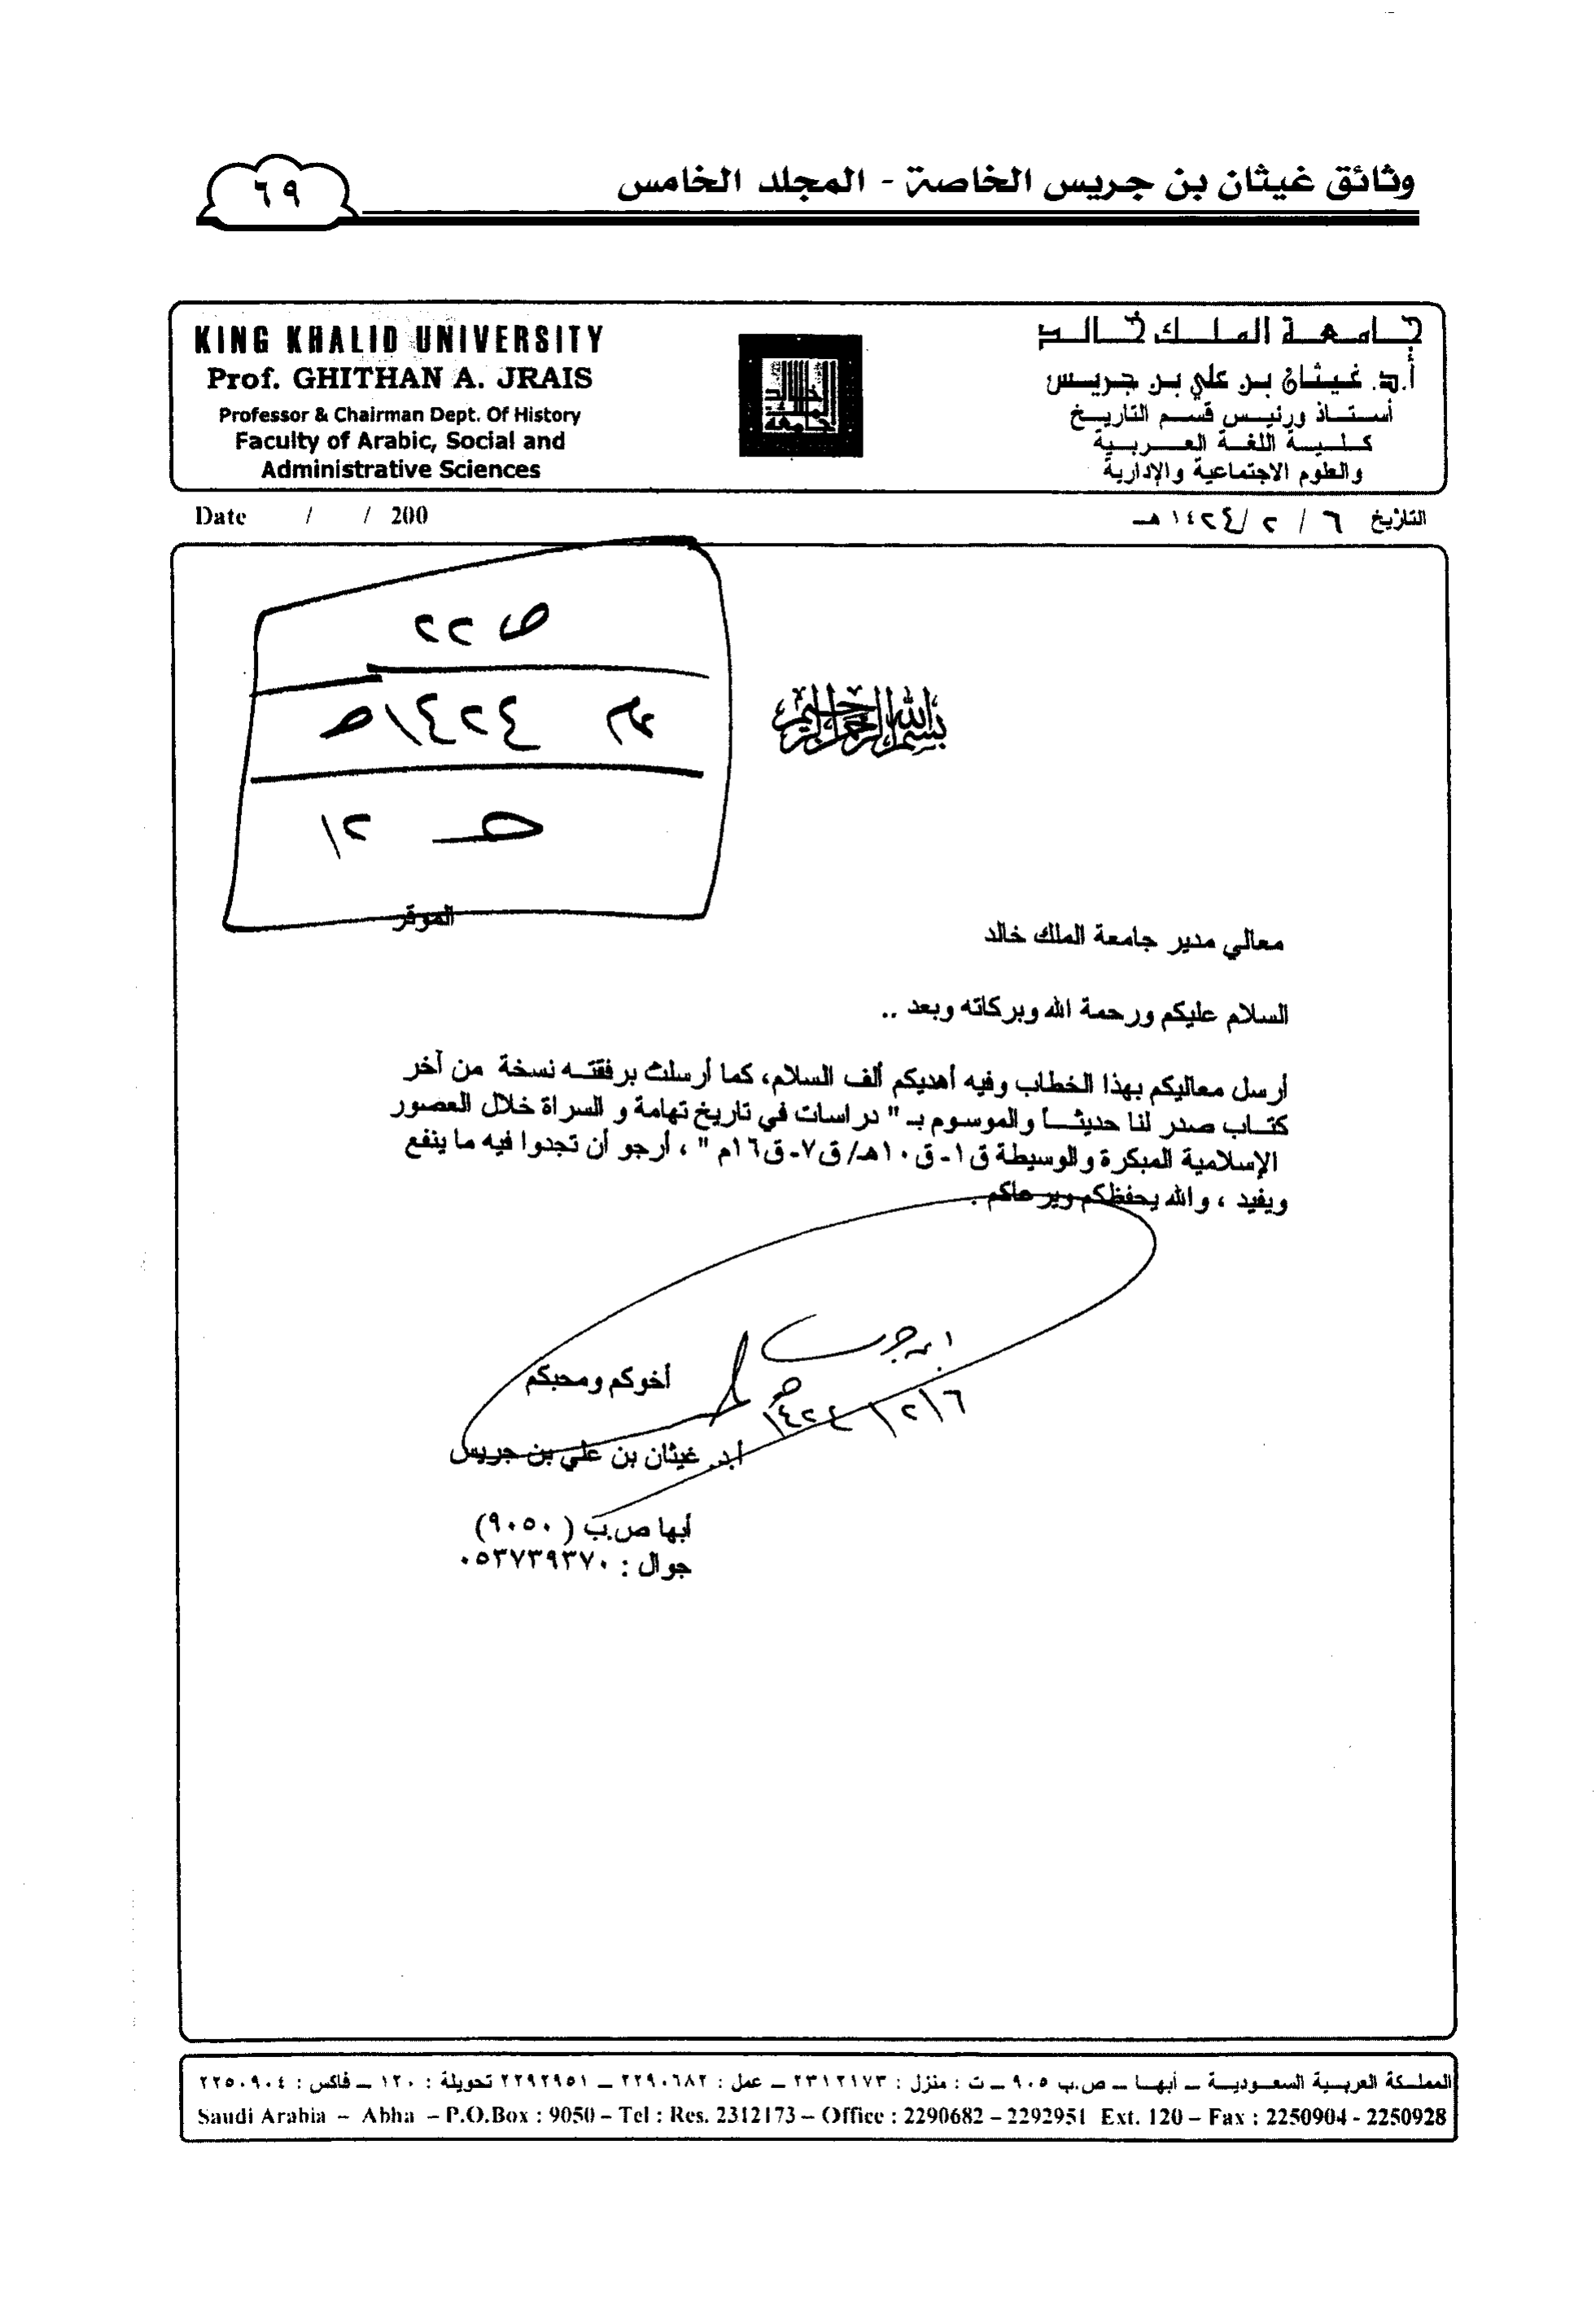 وثائق غيثان بن جريس الخاصة - المجلد الخامس
٦٩
KING KHALID UNIVERSITY
Prof. GHITHAN A. JRAIS
Professor & Chairman Dept. Of History
Faculty of Arabic, Social and
Administrative Sciences
جامعة الملك خالد
أ.د. غيثان بن علي بن جريس
أستاذ ورئيس قسم التاريخ
كلية اللغة العربية
والعلوم الاجتماعية والإدارية
Date / / 200
التاريخ ٦ / ٢ / ١٤٢٤ هـ
ص ٢٢
١٤٢٤هـ
بسم الله الرحمن الرحيم
معالي مدير جامعة الملك خالد الموقر
السلام عليكم ورحمة الله وبركاته وبعد ..
أرسل معاليكم بهذا الخطاب وفيه أهديكم ألف السلام، كما أرسلت برفقته نسخة من آخر
كتاب صدر لنا حديثاً والموسوم بـ " دراسات في تاريخ تهامة و السراة خلال العصور
الإسلامية المبكرة والوسيطة ق١- ق١٠هـ/ ق٧- ق١٦م " ، أرجو أن تجدوا فيه ما ينفع
ويفيد ، والله يحفظكم ويرعاكم .
أخوكم ومحبكم
٦/٢/١٤٢٤هـ
أ.د. غيثان بن علي بن جريس
أبها ص.ب ( ٩٠٥٠)
جوال : ٠٥٣٧٣٩٣٧٠
المملكة العربية السعودية – أبها – ص.ب ٩٠٥ – ت : منزل : ٢٣١٢١٧٣ – عمل : ٢٢٩٠٦٨٢ – ٢٢٩٢٩٥١ تحويلة : ١٢٠ – فاكس : ٢٢٥٠٩٠٤
Saudi Arabia – Abha – P.O.Box : 9050 – Tel : Res. 2312173 – Office : 2290682 – 2292951 Ext. 120 – Fax : 2250904 - 2250928